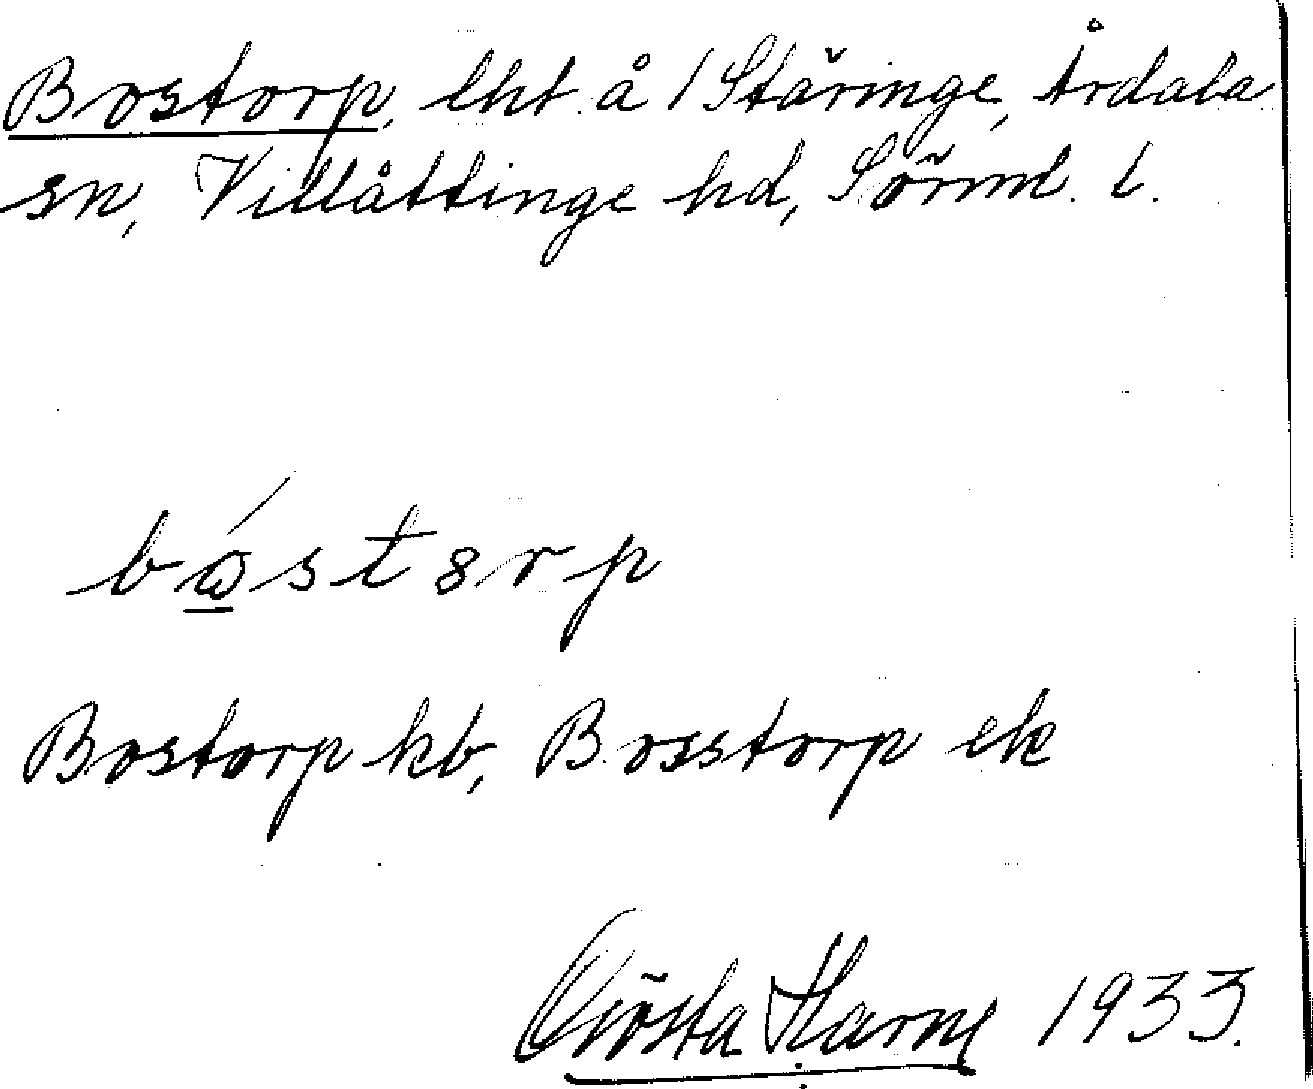 Bostorp, lht å 1 Stäringe, Årdala
sn, Villåttinge hd, Sörml. l.
bǫ́stɞrp
Bostorp kb, Bosstorp ek
Gösta Harne 1933.